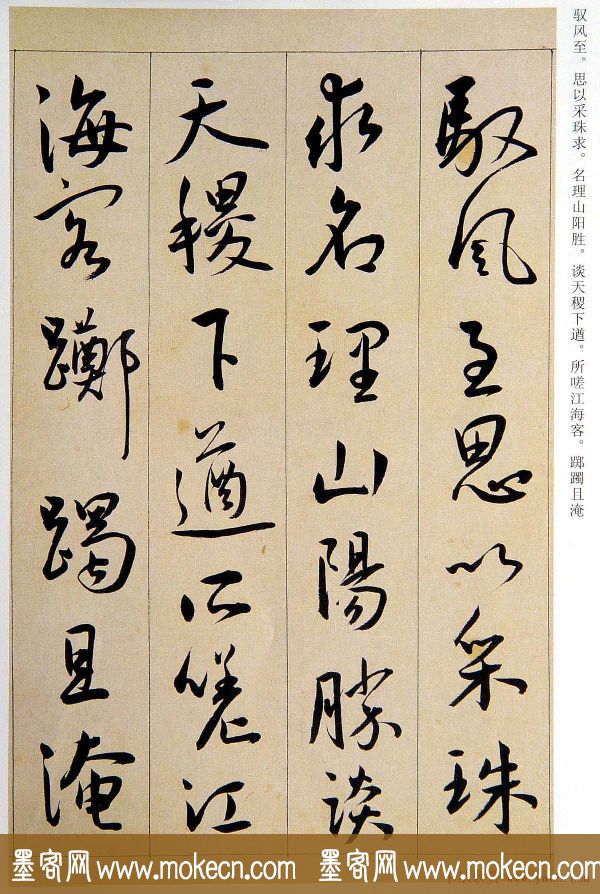 驭风至。思以采珠求。名理山阳胜。谈天稷下遒。所嗟江海客。踯躅且淹
馭風至思以采珠
求名理山陽勝談
天稷下遒所嗟江
海客躑躅且淹
墨客网 www.mokecn.com 墨客网 www.mokecn.com